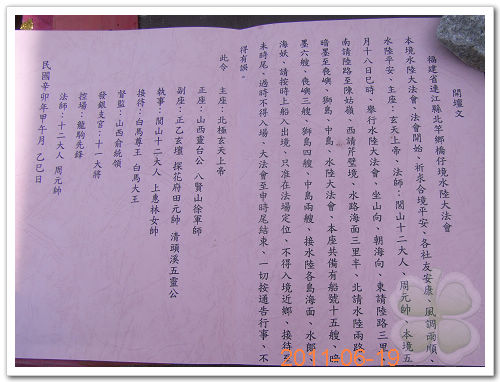 開壇文
福建省連江縣北竿鄉橋仔境水陸大法會
本境水陸大法會、法會開始、祈求合境平安、各社友安康、風調雨順、
水陸平安、主座：玄天上帝、法師：閭山十二大人、周元帥、本境五
月十八日巳時、舉行水陸大法會、坐山向、朝海向、東請陸路三里
南請陸路至陳姑嶺、西請芹壁境、水路海面三里半、北請水陸兩路
暗墨至喪嶼、獅島、中島、水陸大法會、本座共備有船號十五艘、
墨六艘、喪嶼三艘、獅島四艘、中島兩艘、接水陸各島海面、水鄉、
海妖、請按時上船入出境、只准在法場定位、不得入境近鄉、接待至
未時尾、過時不得入場、大法會至申時尾結束、一切按通告行事、不
得有誤。
此令　主座：北極玄天上帝
正座：山西靈台公　八賢山徐軍師
副座：正乙玄壇　探花府田元帥　清頭溪五靈公
執事：閭山十二大人　上惠林女帥
接待：白馬尊王　白馬大王
督監：山西俞統領
發銀支宮：十一大將
控場：龍朐先鋒
法師：十二大人　周元帥
民國辛卯年甲午月　乙巳日
2011-06-19